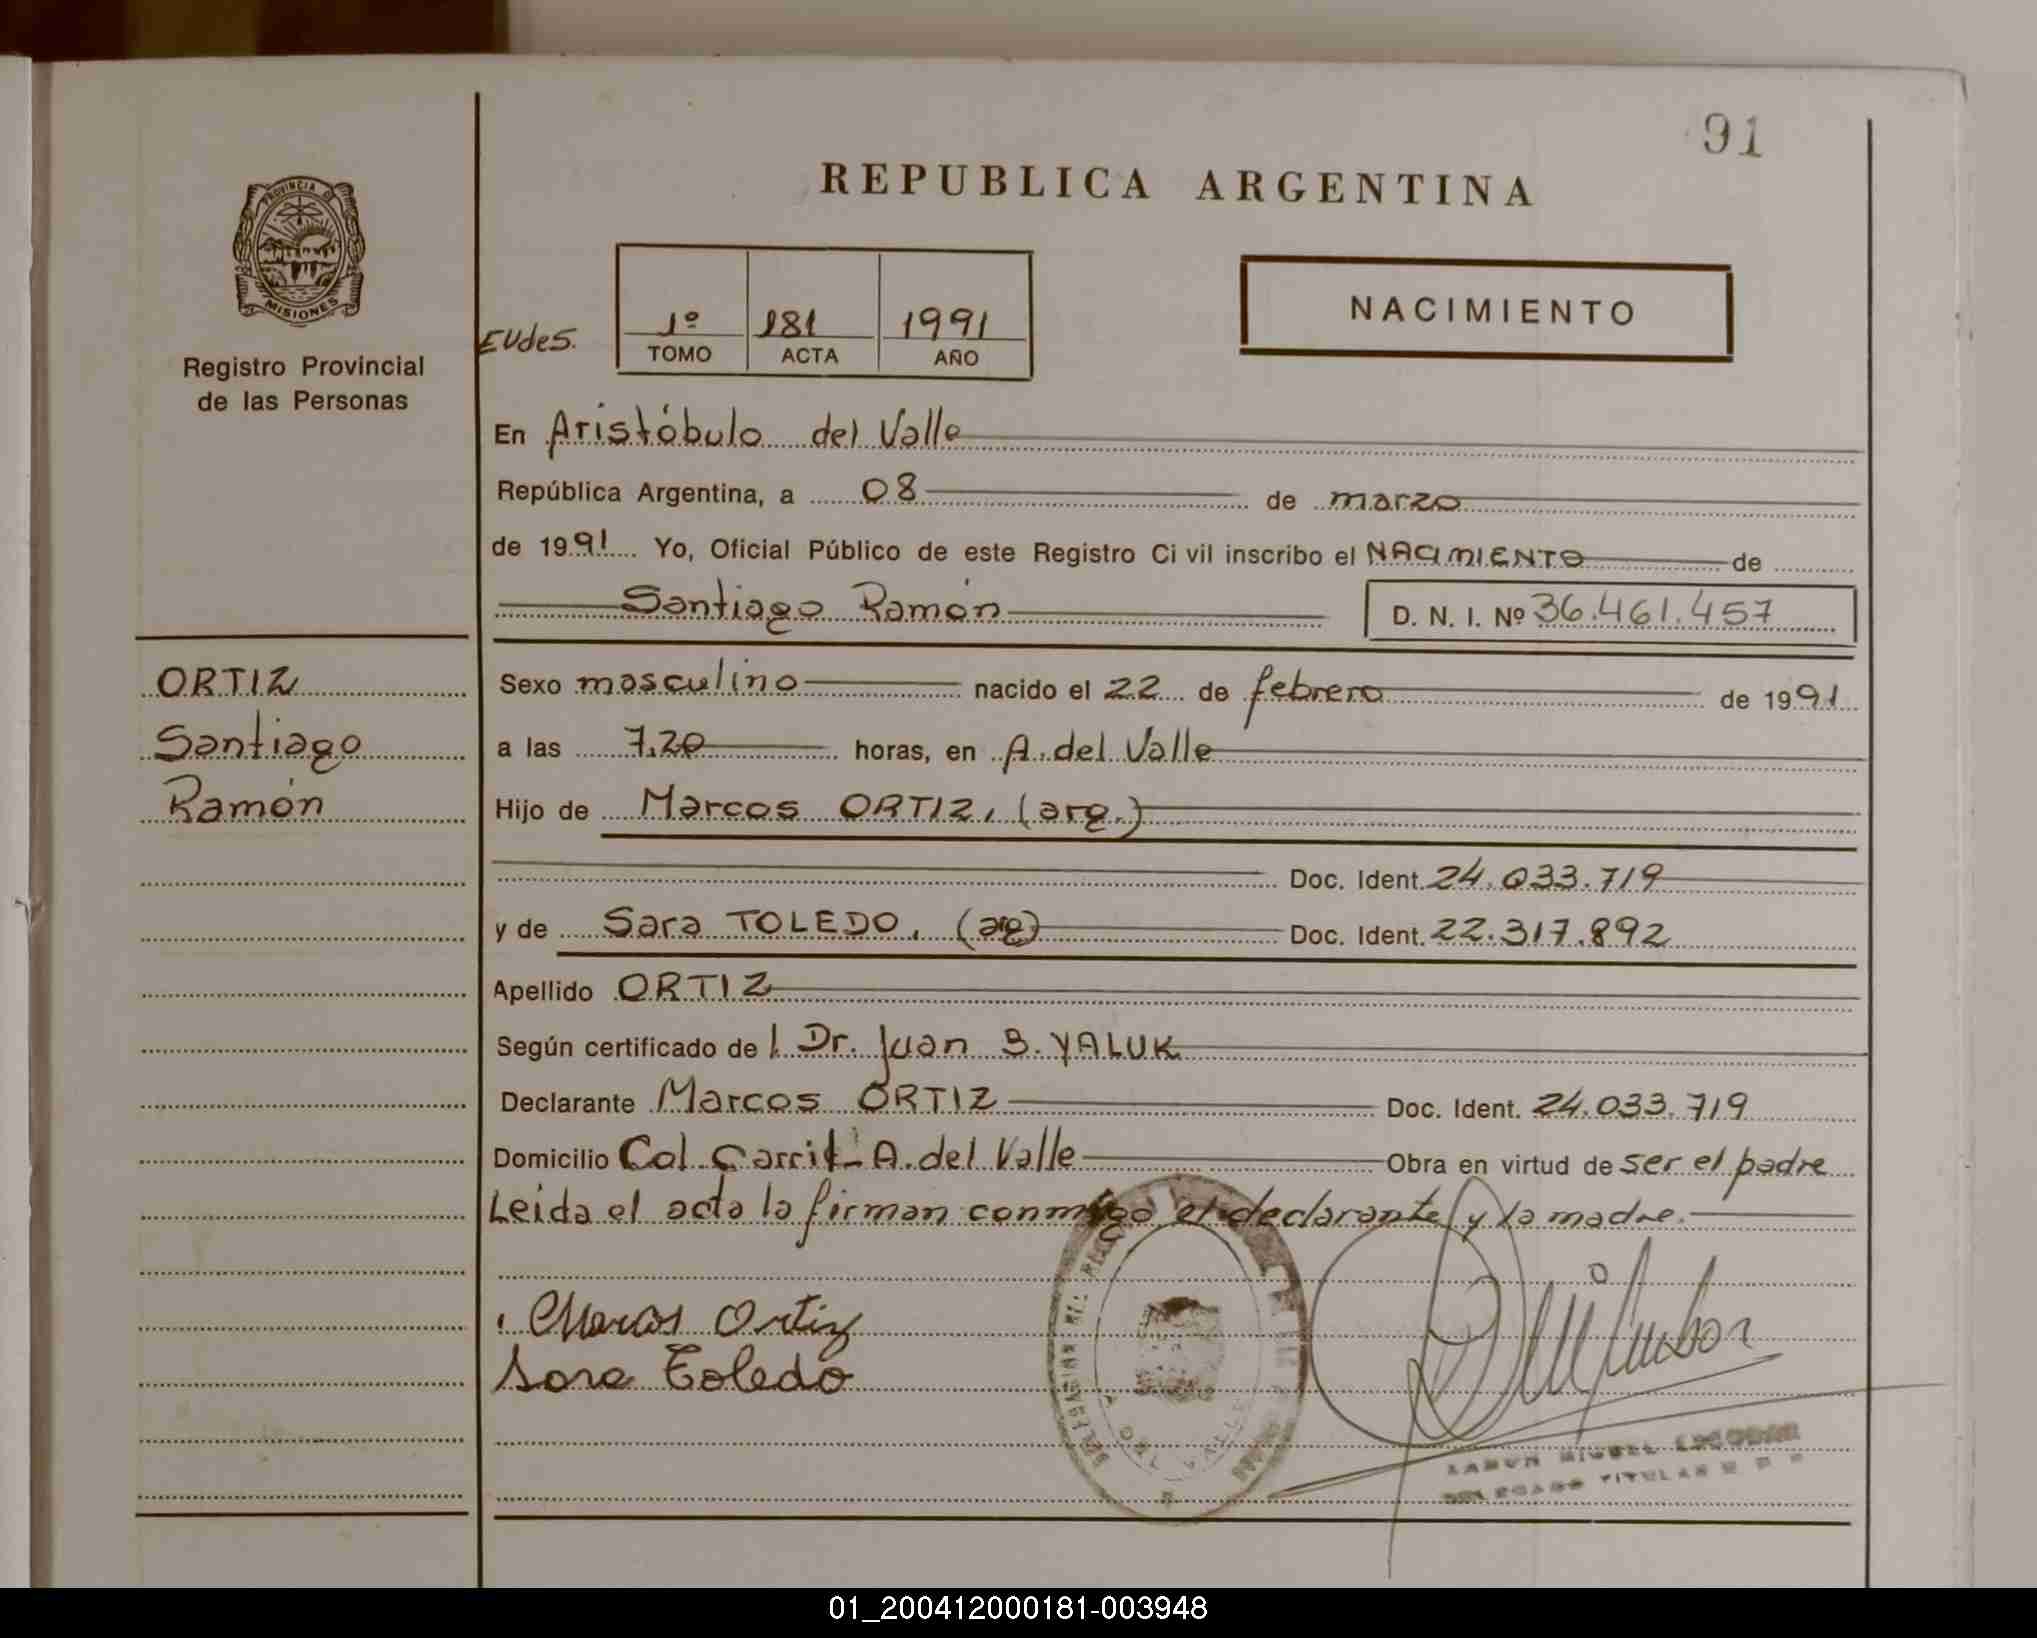 91
REPUBLICA ARGENTINA
PROVINCIA D
MISIONES
Registro Provincial
de las Personas
EUdes.
1º 181 1991
TOMO ACTA AÑO
NACIMIENTO
En Aristóbulo del Valle
República Argentina, a 08 de marzo
de 1991 Yo, Oficial Público de este Registro Ci vil inscribo el NACIMIENTO de
Santiago Ramón D. N. I. Nº 36.461.457
ORTIZ
Santiago
Ramón
Sexo masculino nacido el 22 de febrero de 1991
a las 7,20 horas, en A. del Valle
Hijo de Marcos ORTIZ, (arg.)
Doc. Ident. 24.033.719
y de Sara TOLEDO, (arg) Doc. Ident. 22.317.892
Apellido ORTIZ
Según certificado de l Dr. Juan B. YALUK
Declarante Marcos ORTIZ Doc. Ident. 24.033.719
Domicilio Col. A. del Valle Obra en virtud de ser el padre
Leída el acta la firman conmigo el declarante y la madre.
Marcos Ortiz
Sara Toledo
MIGUEL ESCOBAR
TITULAR
01_200412000181-003948